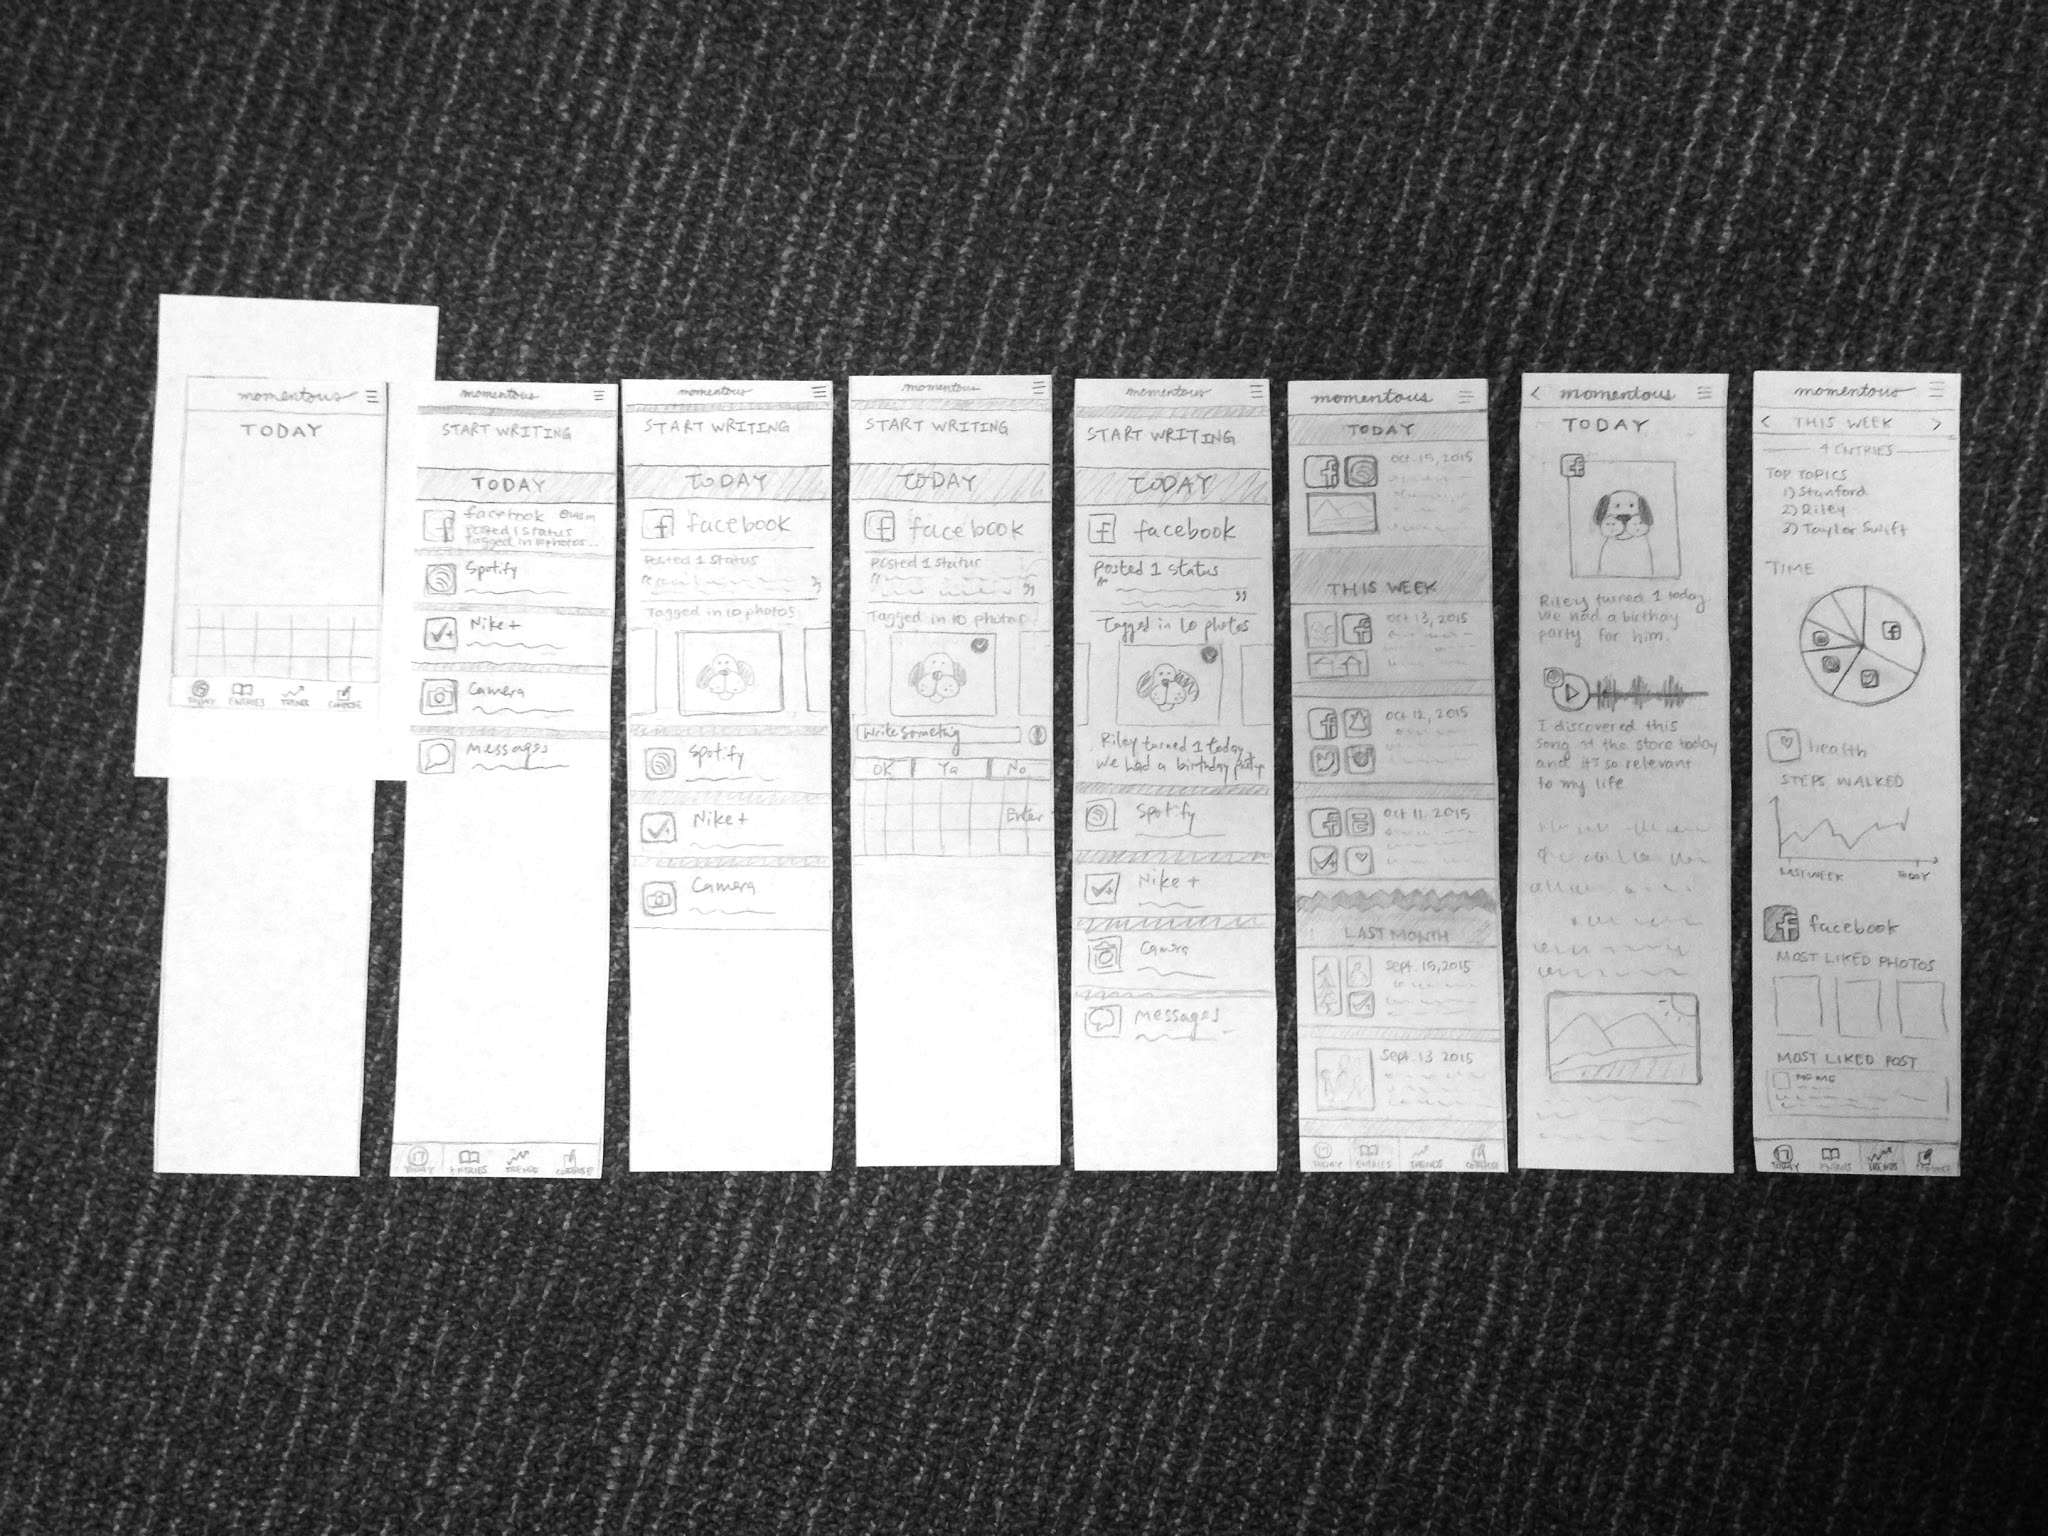 momentous
TODAY
TODAY
ENTRIES
TRENDS
COMPOSE
momentous
START WRITING
TODAY
facebook
posted 1 status
Tagged in 10 photos...
Spotify
Nike+
Camera
Messages
TODAY
ENTRIES
TRENDS
COMPOSE
momentous
START WRITING
TODAY
facebook
Posted 1 status
Tagged in 10 photos
Spotify
Nike+
Camera
momentous
START WRITING
TODAY
facebook
Posted 1 status
Tagged in 10 photos
Write something
OK
Ya
No
Enter
momentous
START WRITING
TODAY
facebook
Posted 1 status
Tagged in 10 photos
Riley turned 1 today,
we had a birthday party
Spotify
Nike +
Camera
Messages
momentous
TODAY
Oct. 15, 2015
THIS WEEK
Oct 13, 2015
Oct 12, 2015
Oct 11, 2015
LAST MONTH
Sept. 15, 2015
Sept. 13 2015
TODAY
ENTRIES
TRENDS
COMPOSE
< momentous
TODAY
Riley turned 1 today.
We had a birthay
party for him.
I discovered this
song at the store today
and it's so relevant
to my life
momentous
< THIS WEEK >
4 ENTRIES
TOP TOPICS
1) Stanford
2) Riley
3) Taylor Swift
TIME
health
STEPS WALKED
LAST WEEK
TODAY
facebook
MOST LIKED PHOTOS
MOST LIKED POST
TODAY
ENTRIES
TRENDS